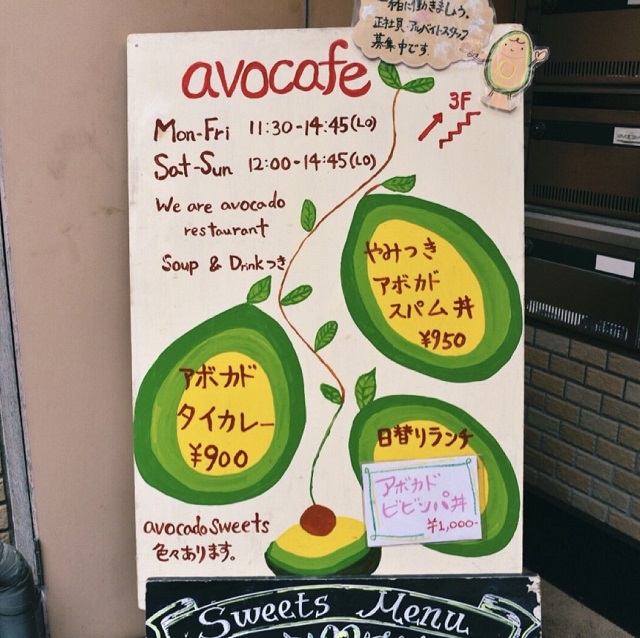 一緒に働きましょう。
正社員・アルバイトスタッフ
募集中です。
avocafe
3F
Mon-Fri 11:30-14:45(LO)
Sat-Sun 12:00-14:45(LO)
We are avocado
restaurant
Soup & Drinkつき
やみつき
アボカド
スパム丼
¥950
アボカド
タイカレー
¥900
日替りランチ
アボカド
ビビンパ丼
¥1,000-
avocado sweets
色々あります。
Sweets Menu